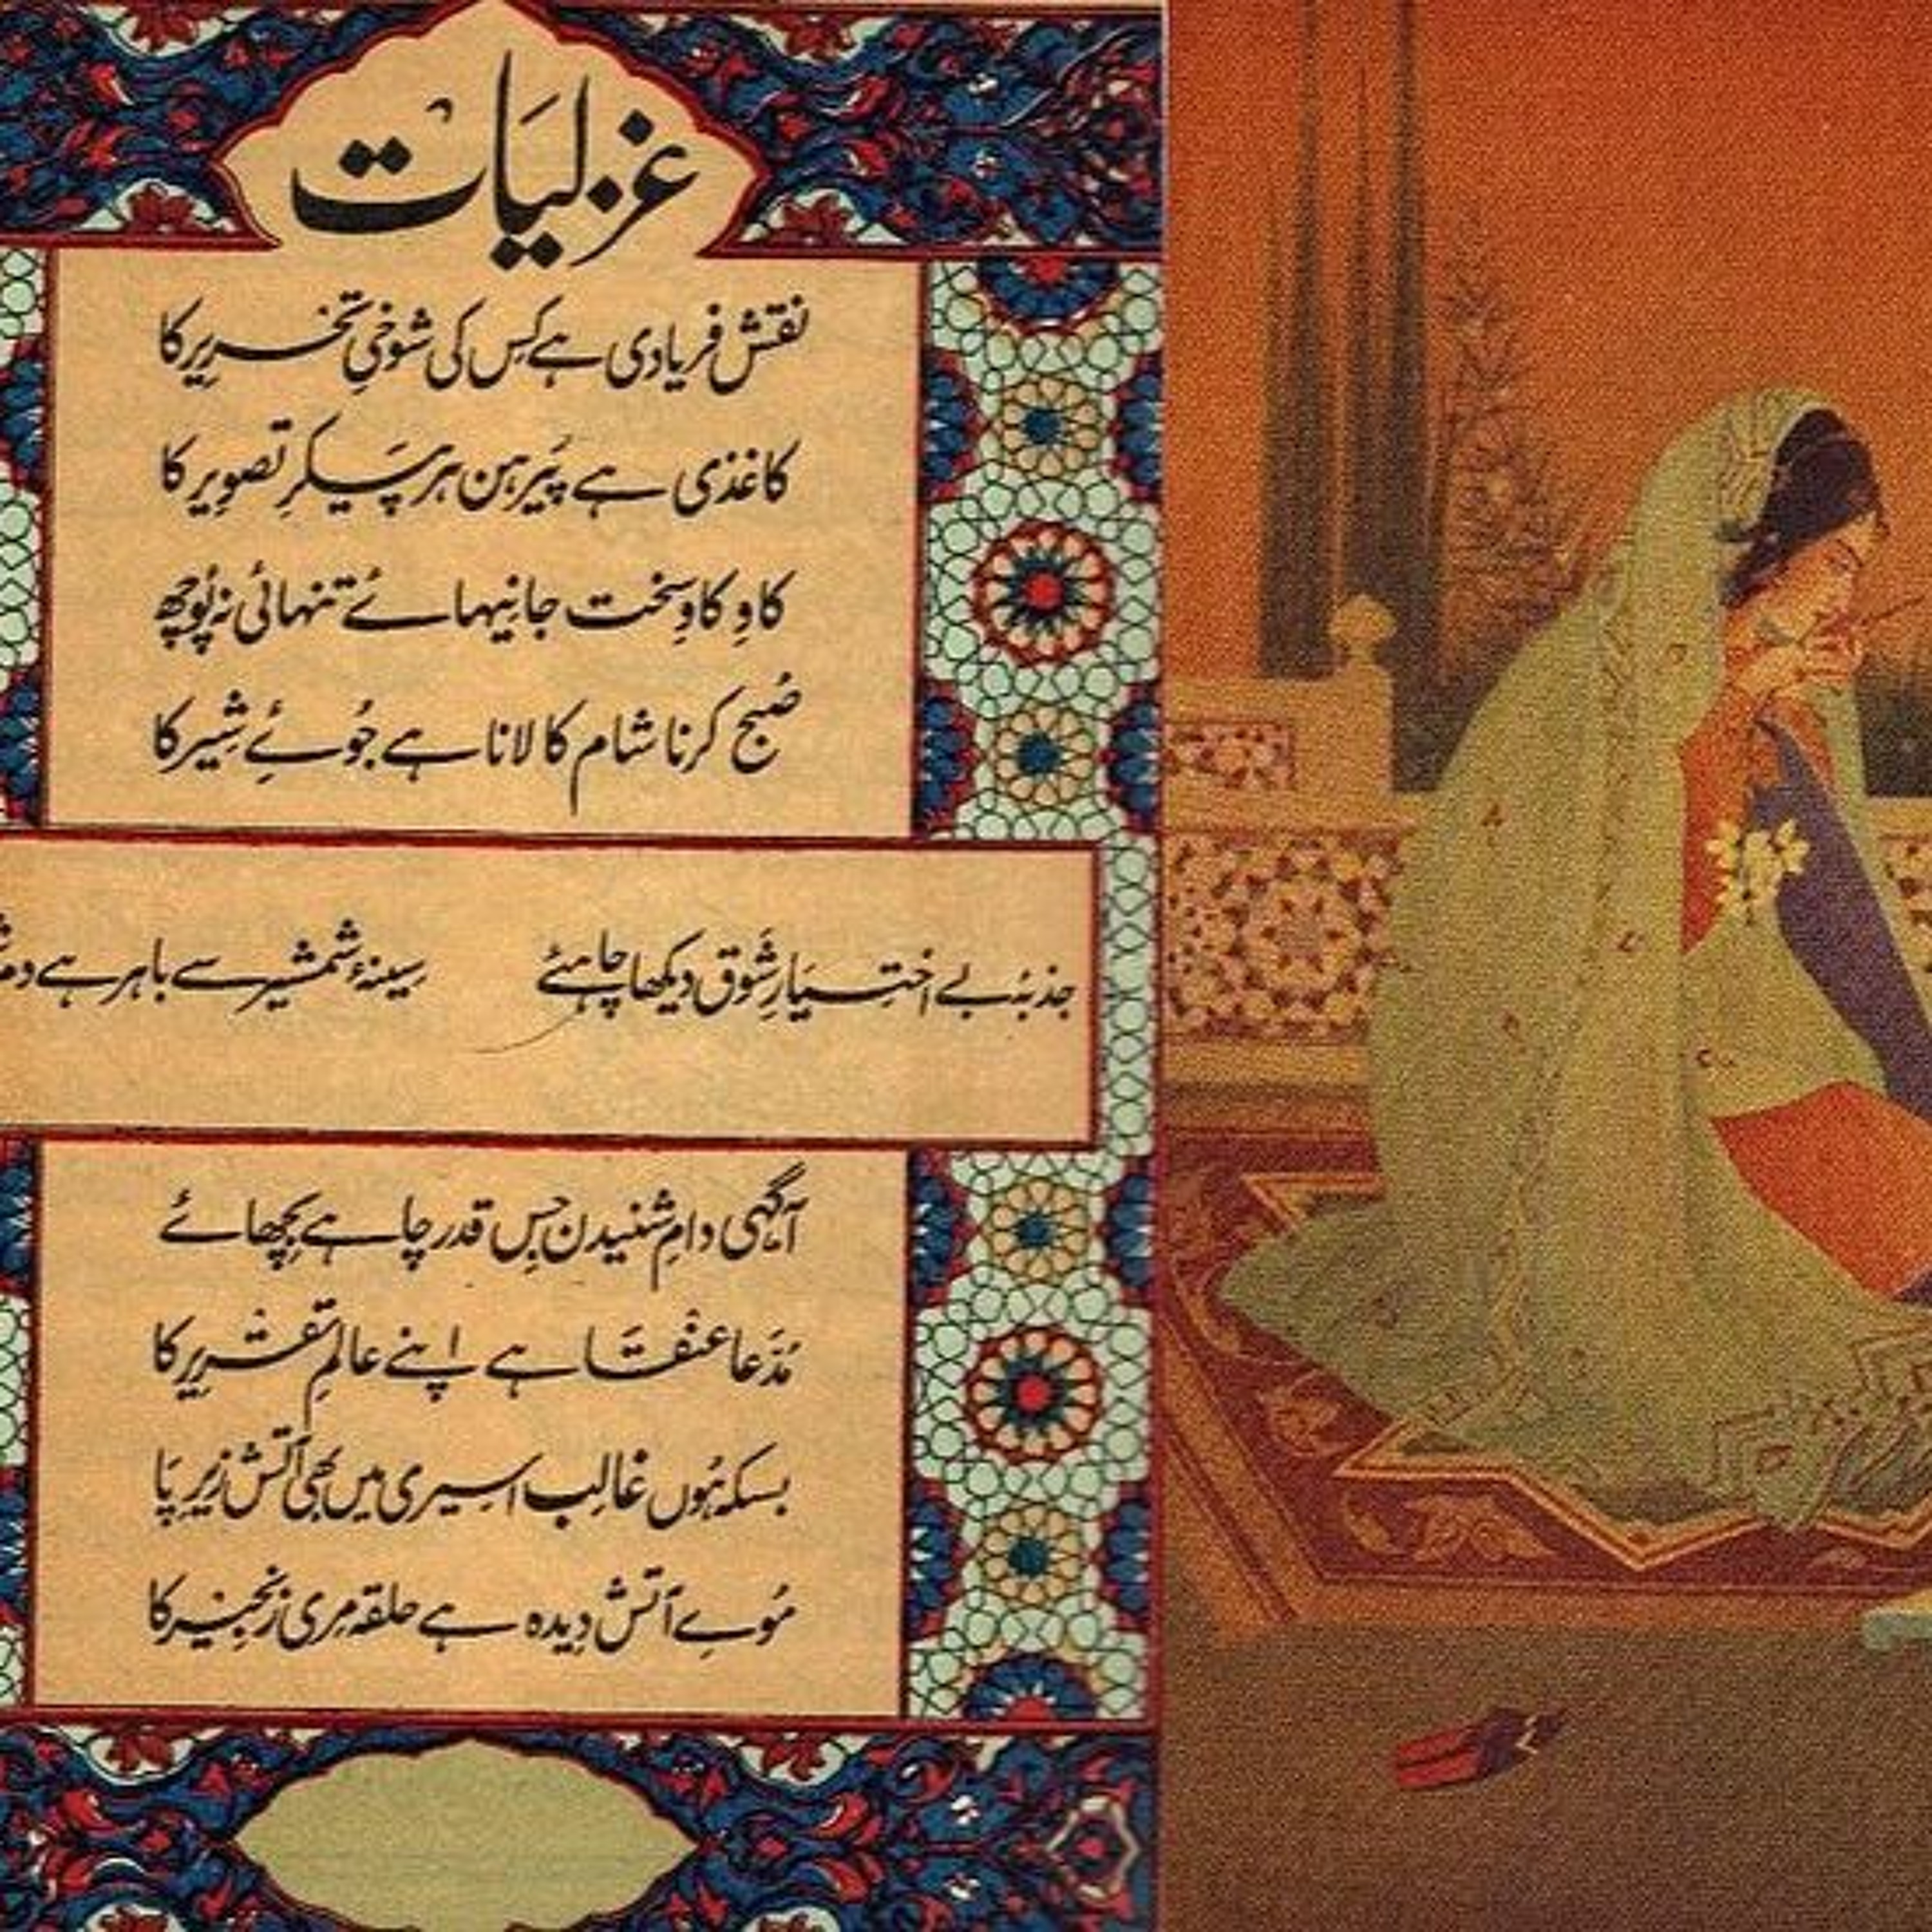 غزلیات
نقش فریادی ہے کِس کی شوخیِ تحریر کا
کاغذی ہے پَیرہن ہر پَیکرِ تصویر کا
کاوِ کاوِ سخت جانیہائے تنہائی نہ پُوچھ
صُبح کرنا شام کا لانا ہے جُوئے شِیر کا
جذبۂ بے اختیارِ شَوق دیکھا چاہئے سینۂ شمشیر سے باہر ہے
آگہی دامِ شنیدن جِس قدر چاہے بِچھائے
مُدَّعا عنقَا ہے اپنے عالمِ تقریر کا
بسکہ ہُوں غالِب اسِیری میں بھی آتش زیرِ پَا
مُوے آتش دِیدہ ہے حلقہ مِری زنجیر کا